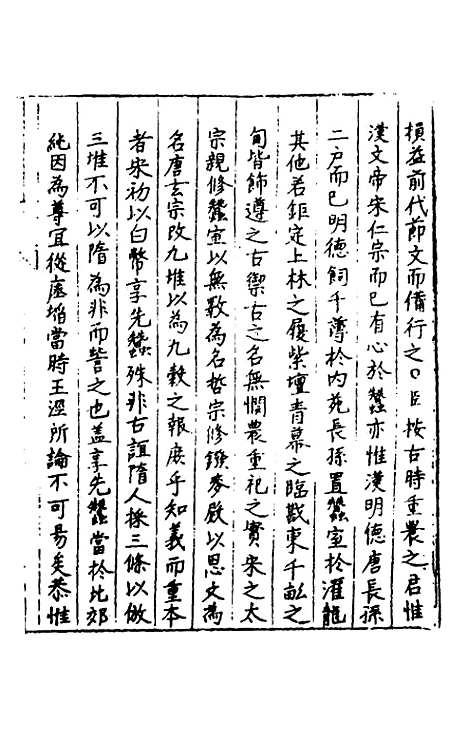 損益前代節文而備行之○臣按古時重農之君惟
漢文帝宋仁宗而已有心於蠶亦惟漢明德唐長孫
二戶而已明德飼千薄於內苑長孫置蠶室於濯龍
其他若鉅定上林之履紫壇青幕之臨戡東千畝之
旬皆飾遵之古禦古之名無憫農重祀之實宋之太
宗親修蠶室以無斁為名哲宗修鐭麥殿以思文為
名唐玄宗改九堆以為九穀之報庶乎知義而重本
者宋初以白幣享先蠶殊非古誼隋人採三條以倣
三堆不可以隋為非而訾之也盖享先蠶當於北郊
純因為尊宜從處焰當時王涇所論不可易矣恭惟